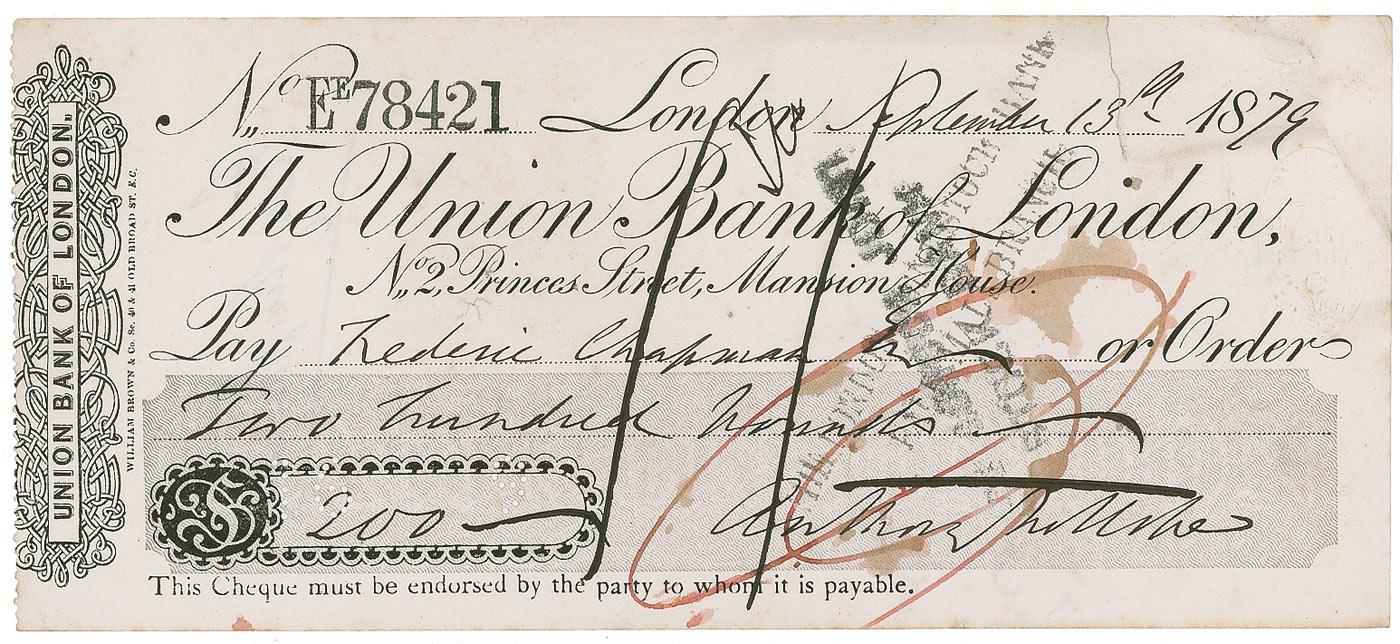 UNION BANK OF LONDON.
WILLIAM BROWN & Co. Sc. 40 & 41 OLD BROAD ST. E.C.
No. EE78421 London September 13th 1879
The Union Bank of London,
No. 2, Princes Street, Mansion House.
Pay Frederic Chapman or Order
Two hundred Pounds
£ 200
Anthony Trollope
This Cheque must be endorsed by the party to whom it is payable.
BANK
BRANCH